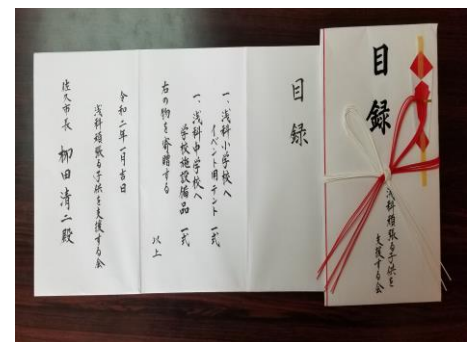 目録
浅科頑張る子供を
支援する会
目録
一、浅科小学校へ
イベント用テント 一式
一、浅科中学校へ
学校施設備品 一式
右の物を寄贈する
以上
令和二年一月吉日
浅科頑張る子供を支援する会
佐久市長 柳田清二殿